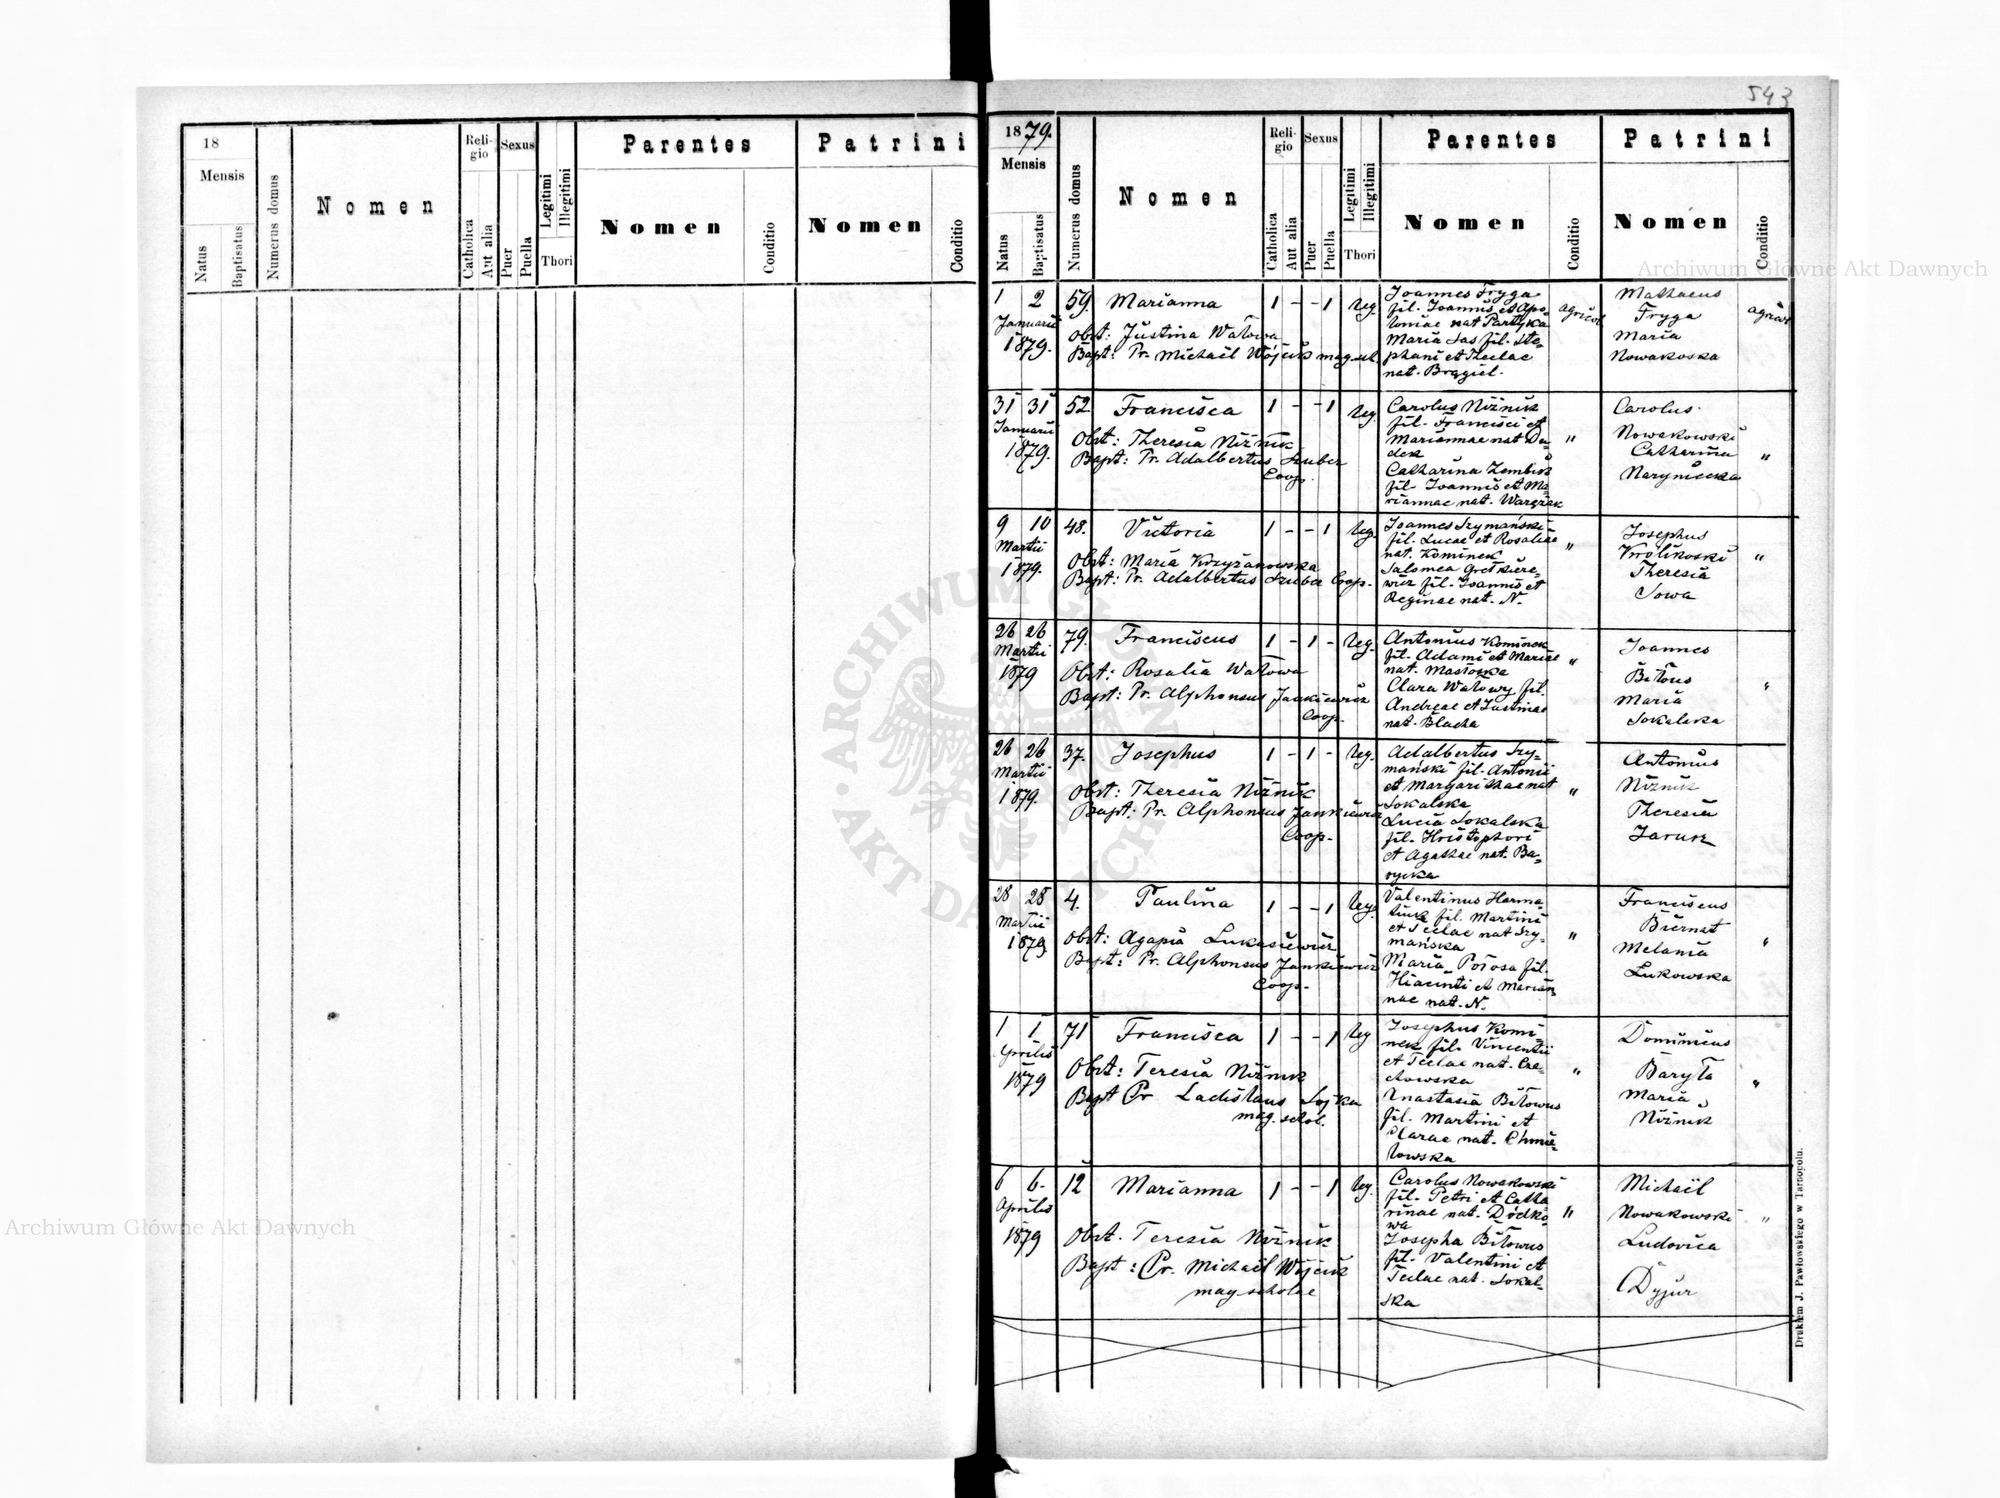 543
18
Mensis
Natus
Baptisatus
Numerus domus
Nomen
Reli-
gio
Catholica
Aut alia
Sexus
Puer
Puella
Legitimi
Illegitimi
Thori
Parentes
Nomen
Conditio
Patrini
Nomen
Conditio
1879.
Mensis
Natus
Baptisatus
Numerus domus
Nomen
Reli-
gio
Catholica
Aut alia
Sexus
Puer
Puella
Legitimi
Illegitimi
Thori
Parentes
Nomen
Conditio
Patrini
Nomen
Conditio
1 2 59. Marianna 1 - - 1 leg.
Januarii
1879.
Obst: Justina Watowa
Bapt: Pr. Michaël Wójcik mag. sch.
Joannes Fryga
fil. Joannis et Apo-
loniae nat Partyka
Maria Sas fil. Ste-
phani et Theclae
nat. Brągiel.
agricol
Mathaeus
Fryga
Maria
Nowakoska
agricol
31 31 52 Francisca 1 - - 1 leg.
Januarii
1879.
Obst: Theresia Niżnik
Bapt: Pr. Adalbertus Szuber
Coop.
Carolus Niżnik
fil. Francisci et
Mariannae nat Du-
dek
Catharina Zembik
fil Joannis et Ma-
riannae nat. Wargzak
"
Carolus
Nowakowski
Catharina
Narymiecka
"
9 10 48. Victoria 1 - - 1 leg.
Martii
1879.
Obst: Maria Krzyżanowska
Bapt: Pr. Adalbertus Szuber Coop.
Joannes Szymański
fil. Lucae et Rosaliae
nat. Kominek
Salomea Gretkiere-
wicz fil. Joannis et
Reginae nat. N.
"
Josephus
Królikoski
Theresia
Sowa
"
26 26 79. Franciscus 1 - 1 - leg.
Martii
1879
Obst: Rosalia Watowa
Bapt: Pr. Alphonsus Jankiewicz
Coop.
Antonius Kominek
fil. Adami et Mariae
nat. Masłoska
Clara Watowy fil.
Andreae et Justinae
nat. Blacha
"
Joannes
Bitous
Maria
Sokalska
"
26 26 37. Josephus 1 - 1 - leg.
Martii
1879.
Obst: Theresia Niżnik
Bapt: Pr. Alphonsus Jankiewicz
Coop.
Adalbertus Szy-
mański fil. Antonii
et Margarithae nat
Sokalska
Lucia Sokalska
fil. Hristophori
et Agathae nat. Ba-
rycka
"
Antonius
Niżnik
Theresia
Jaruk
28 28 4. Paulina 1 - - 1 leg.
Martii
1879
Obst: Agapia Lukasiewicz
Bapt: Pr. Alphonsus Jankiewicz
Coop.
Valentinus Harma-
tiuk fil. Martini
et Teclae nat Szy-
mańska
Maria Porosa fil.
Hiacinti et Marian
nae nat. N.
"
Franciscus
Biernat
Melania
Lukowska
"
1 1 71 Francisca 1 - - 1 leg
Aprilis
1879
Obst: Teresia Niżnik
Bapt Pr Ladislaus Sojka
mag. schol.
Josephus Komi-
nek fil. Vincentii
et Teclae nat. Cze-
chowska
Anastasia Bitowus
fil. Martini et
Clarae nat. Chmie-
lowska
"
Dominicus
Baryła
Maria
Niżnik
"
6 6. 12 Marianna 1 - - 1 leg.
Aprilis
1879
Obst. Teresia Niżnik
Bapt: Pr. Michaël Wójcik
mag scholae
Carolus Nowakowski
fil. Petri et Catha
rinae nat. Dódko
wa
Josepha Bitowus
fil. Valentini et
Teclae nat. Sokal-
ska
"
Michaël
Nowakowski
Ludovica
Dyjur
"
Drukiem J. Pawłowskiego w Tarnopolu.
Archiwum Główne Akt Dawnych
Archiwum Główne Akt Dawnych
ARCHIWUM GŁÓWNE AKT DAWNYCH